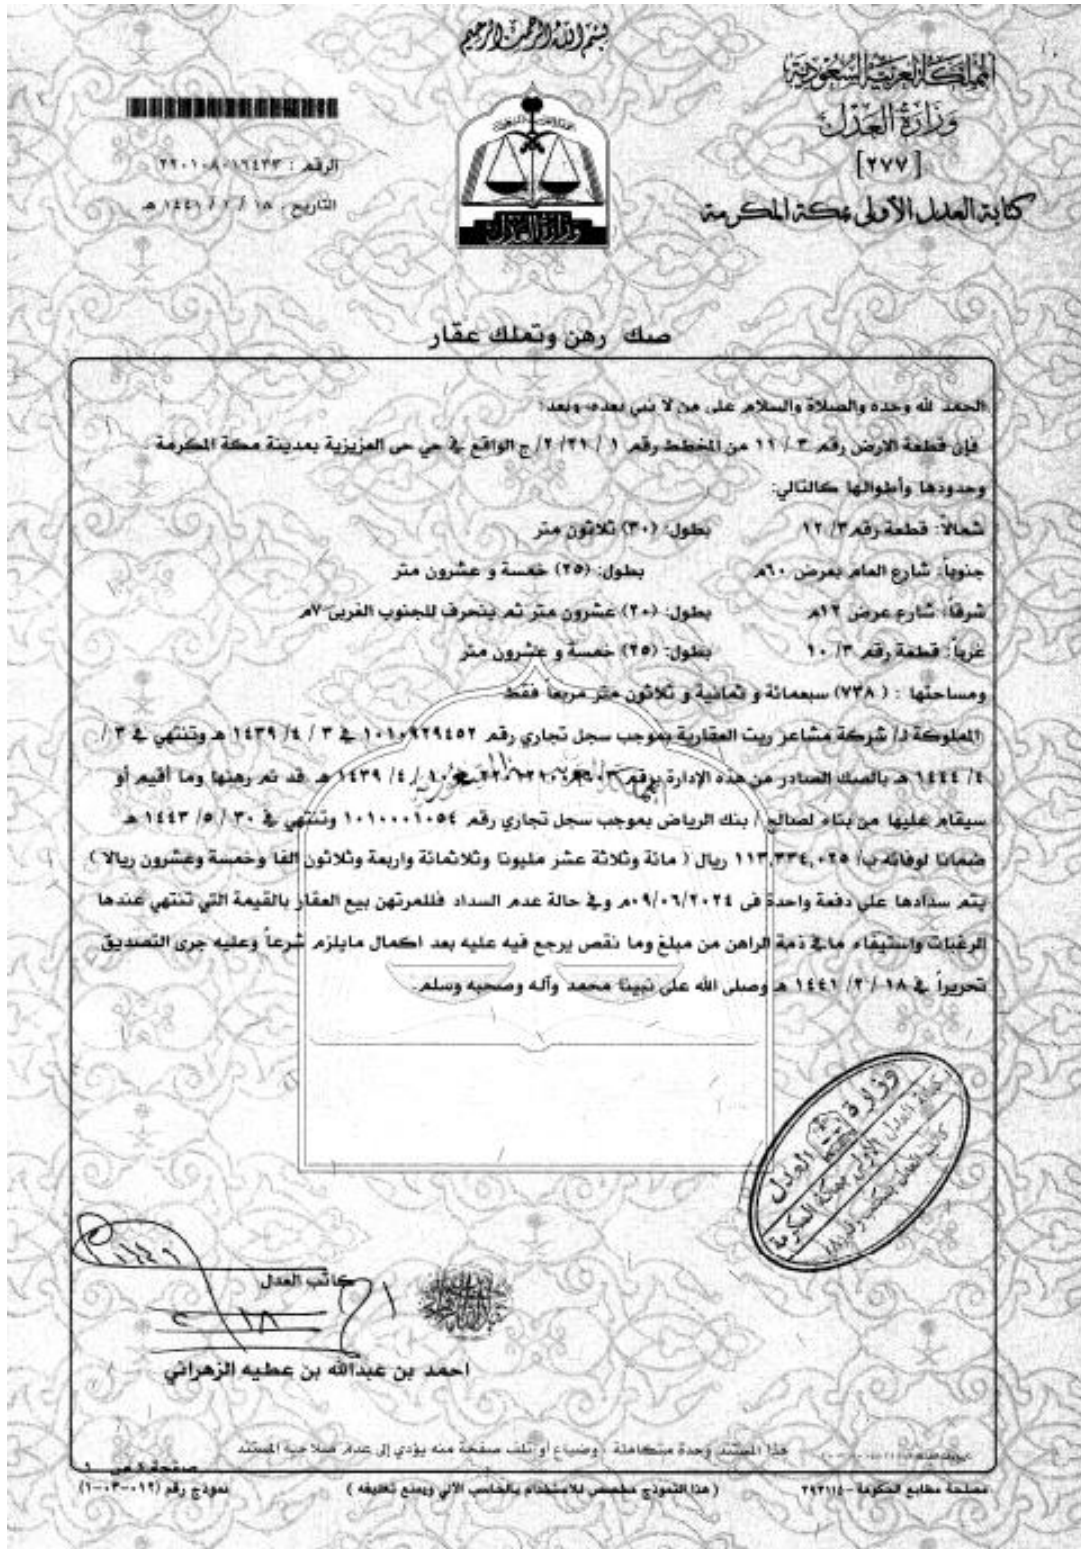 بسم الله الرحمن الرحيم
المملكة العربية السعودية
وزارة العدل
[٢٧٧]
كتابة العدل الأولى بمكة المكرمة
الرقم :
التاريخ : ١٨ / ٢ / ١٤٤١ هـ
وزارة العدل
صك رهن وتملك عقار
الحمد لله وحده والصلاة والسلام على من لا نبي بعده، وبعد:
فإن قطعة الارض رقم ٣ / ١١ من المخطط رقم ١ / ٢١ /٢/ ج الواقع في حي حى العزيزية بمدينة مكة المكرمة .
وحدودها وأطوالها كالتالي:
شمالاً: قطعة رقم ٣/ ١٢ بطول: (٣٠) ثلاثون متر
جنوباً: شارع العام بعرض ٦٠م بطول: (٢٥) خمسة و عشرون متر
شرقاً: شارع عرض ١٢م بطول: (٢٠) عشرون متر ثم ينحرف للجنوب الغربى ٧م
غرباً: قطعة رقم ٣/ ١٠ بطول: (٢٥) خمسة و عشرون متر
ومساحتها : ( ٧٣٨) سبعمائة و ثمانية و ثلاثون متر مربعاً فقط
المملوكة لـ/ شركة مشاعر ريت العقارية بموجب سجل تجاري رقم ١٠١٠٩٢٩٤٥٢ في ٣ / ٤/ ١٤٣٩ هـ وتنتهي في ٣ /
٤/ ١٤٤٤ هـ بالصك الصادر من هذه الإدارة برقم في ١٠ / ٤/ ١٤٣٩ هـ قد تم رهنها وما أقيم أو
سيقام عليها من بناء لصالح / بنك الرياض بموجب سجل تجاري رقم ١٠١٠٠٠١٠٥٤ وتنتهي في ٣٠ / ٥/ ١٤٤٣ هـ
ضمانا لوفائه ب/ ١١٣,٣٣٤,٠٢٥ ريال ( مائة وثلاثة عشر مليونا وثلاثمائة واربعة وثلاثون الفا وخمسة وعشرون ريالا )
يتم سدادها على دفعة واحدة فى ٠٩/٠٦/٢٠٢٤م وفي حالة عدم السداد فللمرتهن بيع العقار بالقيمة التي تنتهي عندها
الرغبات واستيفاء مافي ذمة الراهن من مبلغ وما نقص يرجع فيه عليه بعد اكمال مايلزم شرعاً وعليه جرى التصديق
تحريراً في ١٨ / ٢/ ١٤٤١ هـ وصلى الله على نبينا محمد وآله وصحبه وسلم.
وزارة العدل
كتابة العدل الأولى بمكة المكرمة
كاتب العدل
احمد بن عبدالله بن عطيه الزهراني
هذا المستند وحدة متكاملة ، وضياع أو تلف صفحة منه يؤدي إلى عدم صلاحية المستند
صفحة ١ من ١
مصلحة مطابع الحكومة - ٢٩٢١١٤
( هذا النموذج مخصص للاستخدام بالحاسب الآلي ويمنع تغليفه )
نموذج رقم (١٢-٠٣-٠١)